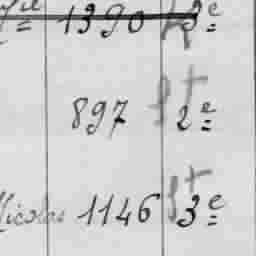 1390 3e
897 2e
Nicolas 1146 3e